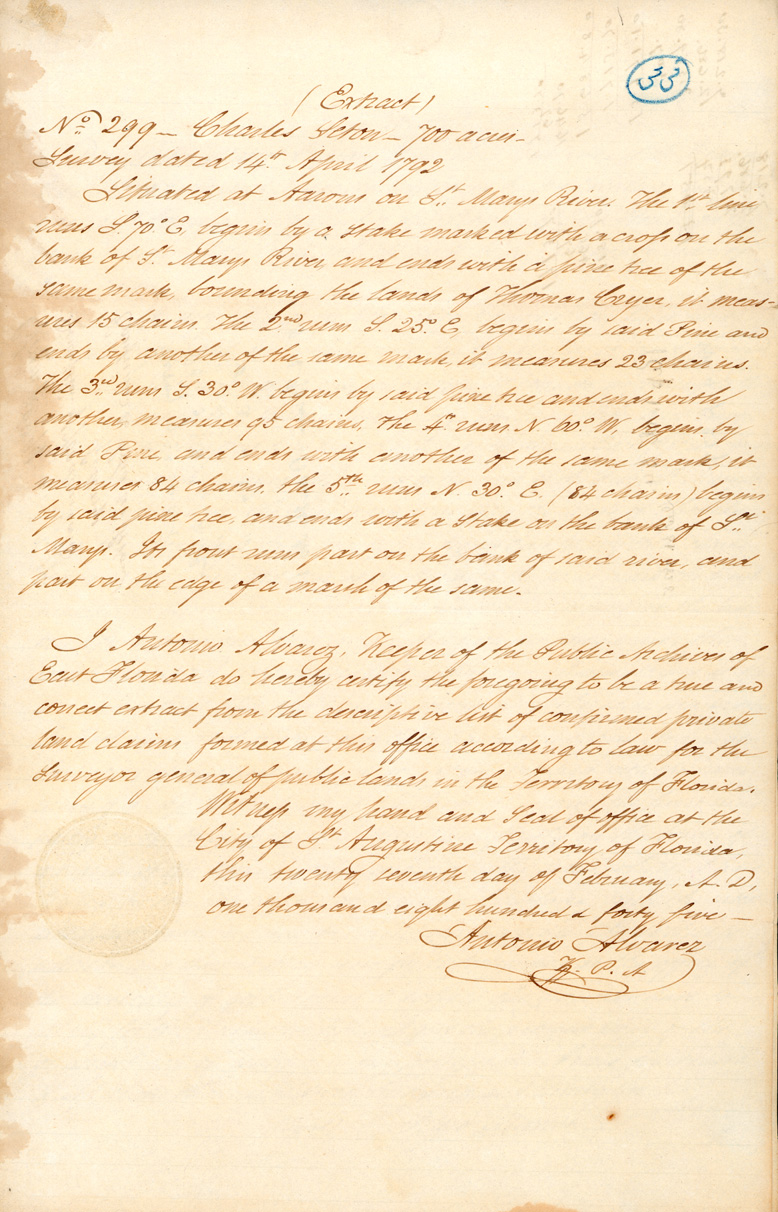 33
(Extract)
No. 299 – Charles Seton – 700 acres –
Survey dated 14th April 1792
Situated at Aarons on St. Marys River. The 1st line
runs S. 70° E, begins by a stake marked with a cross on the
bank of St. Marys River and ends with a pine tree of the
same mark, bounding the lands of Thomas Cryer, it meas-
ures 15 chains. The 2nd runs S. 25° E, begins by said Pine and
ends by another of the same mark, it measures 23 chains.
The 3rd runs S. 30° W. begins by said pine tree and ends with
another, measures 95 chains, the 4th runs N. 60° W, begins by
said Pine, and ends with another of the same mark, it
measures 84 chains, the 5th runs N. 30° E. (84 chains) begins
by said pine tree, and ends with a Stake on the bank of St.
Marys. Its front runs part on the bank of said river, and
part on the edge of a marsh of the same.
I Antonio Alvarez, Keeper of the Public Archives of
East Florida do hereby certify the foregoing to be a true and
correct extract from the descriptive list of confirmed private
land claims formed at this office according to law for the
Surveyor general of public lands in the Territory of Florida.
Witness my hand and Seal of office at the
City of St Augustine Territory of Florida,
this twenty seventh day of February, A. D,
one thousand eight hundred & forty five –
Antonio Alvarez
K. P. A